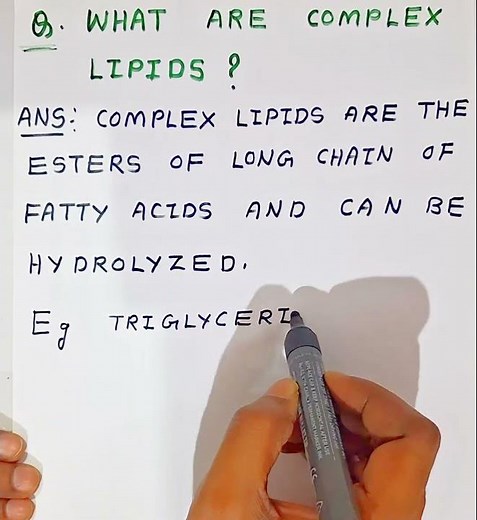 Q. WHAT ARE COMPLEX
LIPIDS ?
ANS: COMPLEX LIPIDS ARE THE
ESTERS OF LONG CHAIN OF
FATTY ACIDS AND CAN BE
HYDROLYZED.
Eg TRIGLYCERI